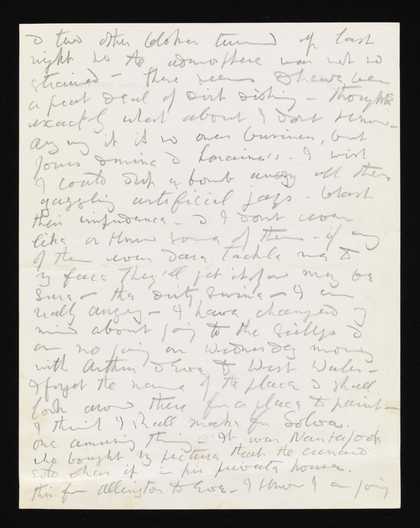 & two other blokes turned up last
night so the atmosphere was not so
strained — there seems to have been
a great deal of dirt dishing — though
exactly what about I dont know —
any way it is no ones business, but
yours & mine & Loraine's. I wish
I could drop a bomb among all these
gazzling artificial jays — blast
their impudence — & I dont even
like or know some of them — if any
of them ever dare tackle me to
my face they'll get it hot may be
sure — the dirty swine — I am
really angry — I have changed my
mind about going to the Scillys &
am no going on Wednesday morning
with Arthur & Eve to West Wales —
I forget the name of the place & shall
look around there for a place to paint —
I think I shall make for Solva.
one amusing thing — it was
who bought my picture that the
in his private house.
this from Allington to Eve — I know I am going